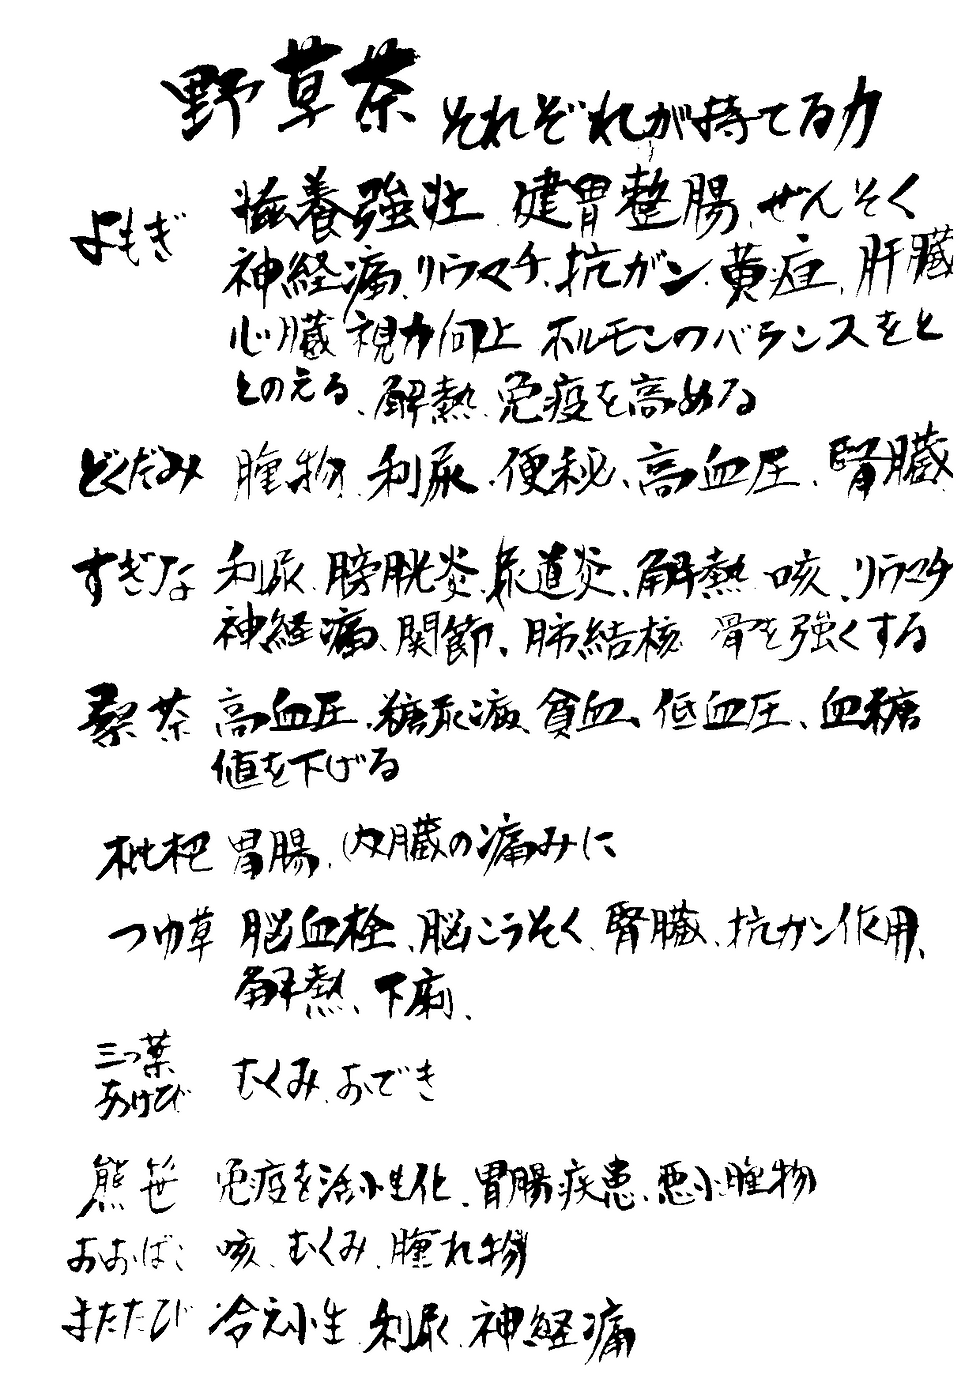 野草茶 それぞれが持てる力
よもぎ 滋養強壮、健胃整腸、ぜんそく
神経痛、リウマチ、抗ガン、黄疸、肝臓
心臓、視力向上 ホルモンのバランスをと
とのえる、解熱、免疫を高める
どくだみ 腫物、利尿、便秘、高血圧、腎臓
すぎな 利尿、膀胱炎、尿道炎、解熱、咳、リウマチ
神経痛、関節、肺結核 骨を強くする
桑茶 高血圧、糖尿病、貧血、低血圧、血糖
値を下げる
枇杷 胃腸、内臓の痛みに
つゆ草 脳血栓、脳こうそく、腎臓、抗ガン作用、
解熱、下痢、
三つ葉
あけび むくみ、おでき
熊笹 免疫を活性化、胃腸疾患、悪性腫物
おおばこ 咳、むくみ、腫れ物
またたび 冷え性、利尿、神経痛